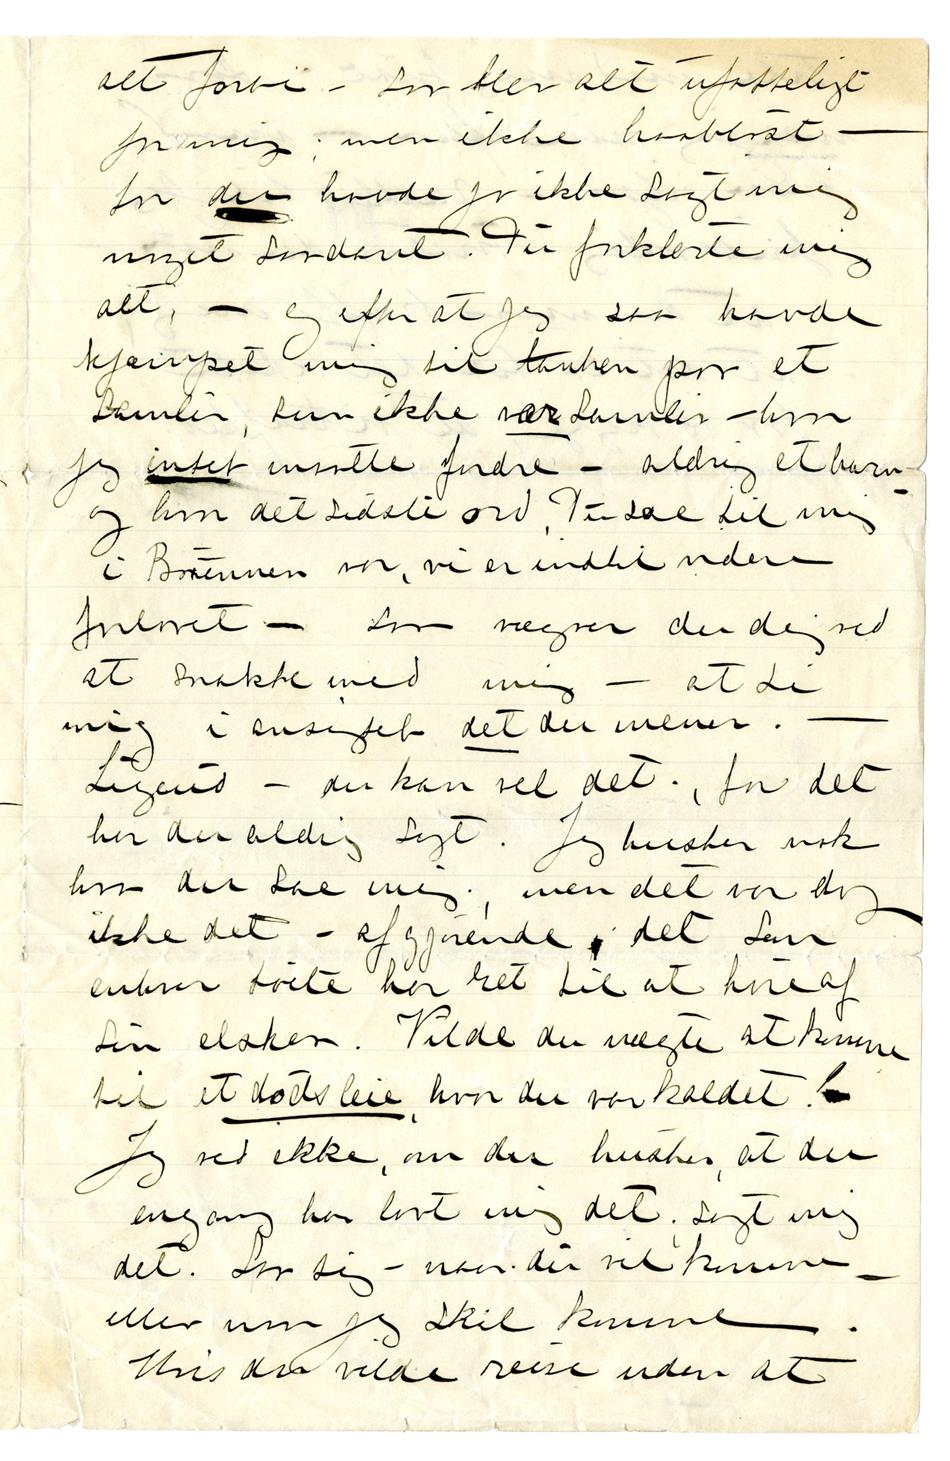 alt forbi – saa blev alt ufatteligt
for mig; men ikke haabløst –
for du havde jo ikke sagt mig
noget saadant. Du forklarte mig
alt, – og efter at jeg saa havde
kjæmpet mig til tanken paa et
samliv, som ikke var samliv – hvor
jeg intet maatte fordre – aldrig et barn –
og hvor det sidste ord, Du sae til mig
i var, vi er indtil videre
forlovet – saa vægrer du dig ved
at snakke med mig – at si
mig i ansigtet det du mener. –
Sigurd – du kan vel det; for det
har du aldrig sagt. Jeg husker nok
hva du sae mig; men det var dog
ikke det – afgjørende, det som
enhver tøite har ret til at høre af
sin elsker. Vilde du nægte at komme
til et dødsleie, hvor du var kaldet! –
Jeg ved ikke, om du husker, at du
engang har lovt mig det, sagt mig
det. Saa sig – naar du vil komme –
eller naar jeg skal komme – .
Hvis du vilde reise uden at